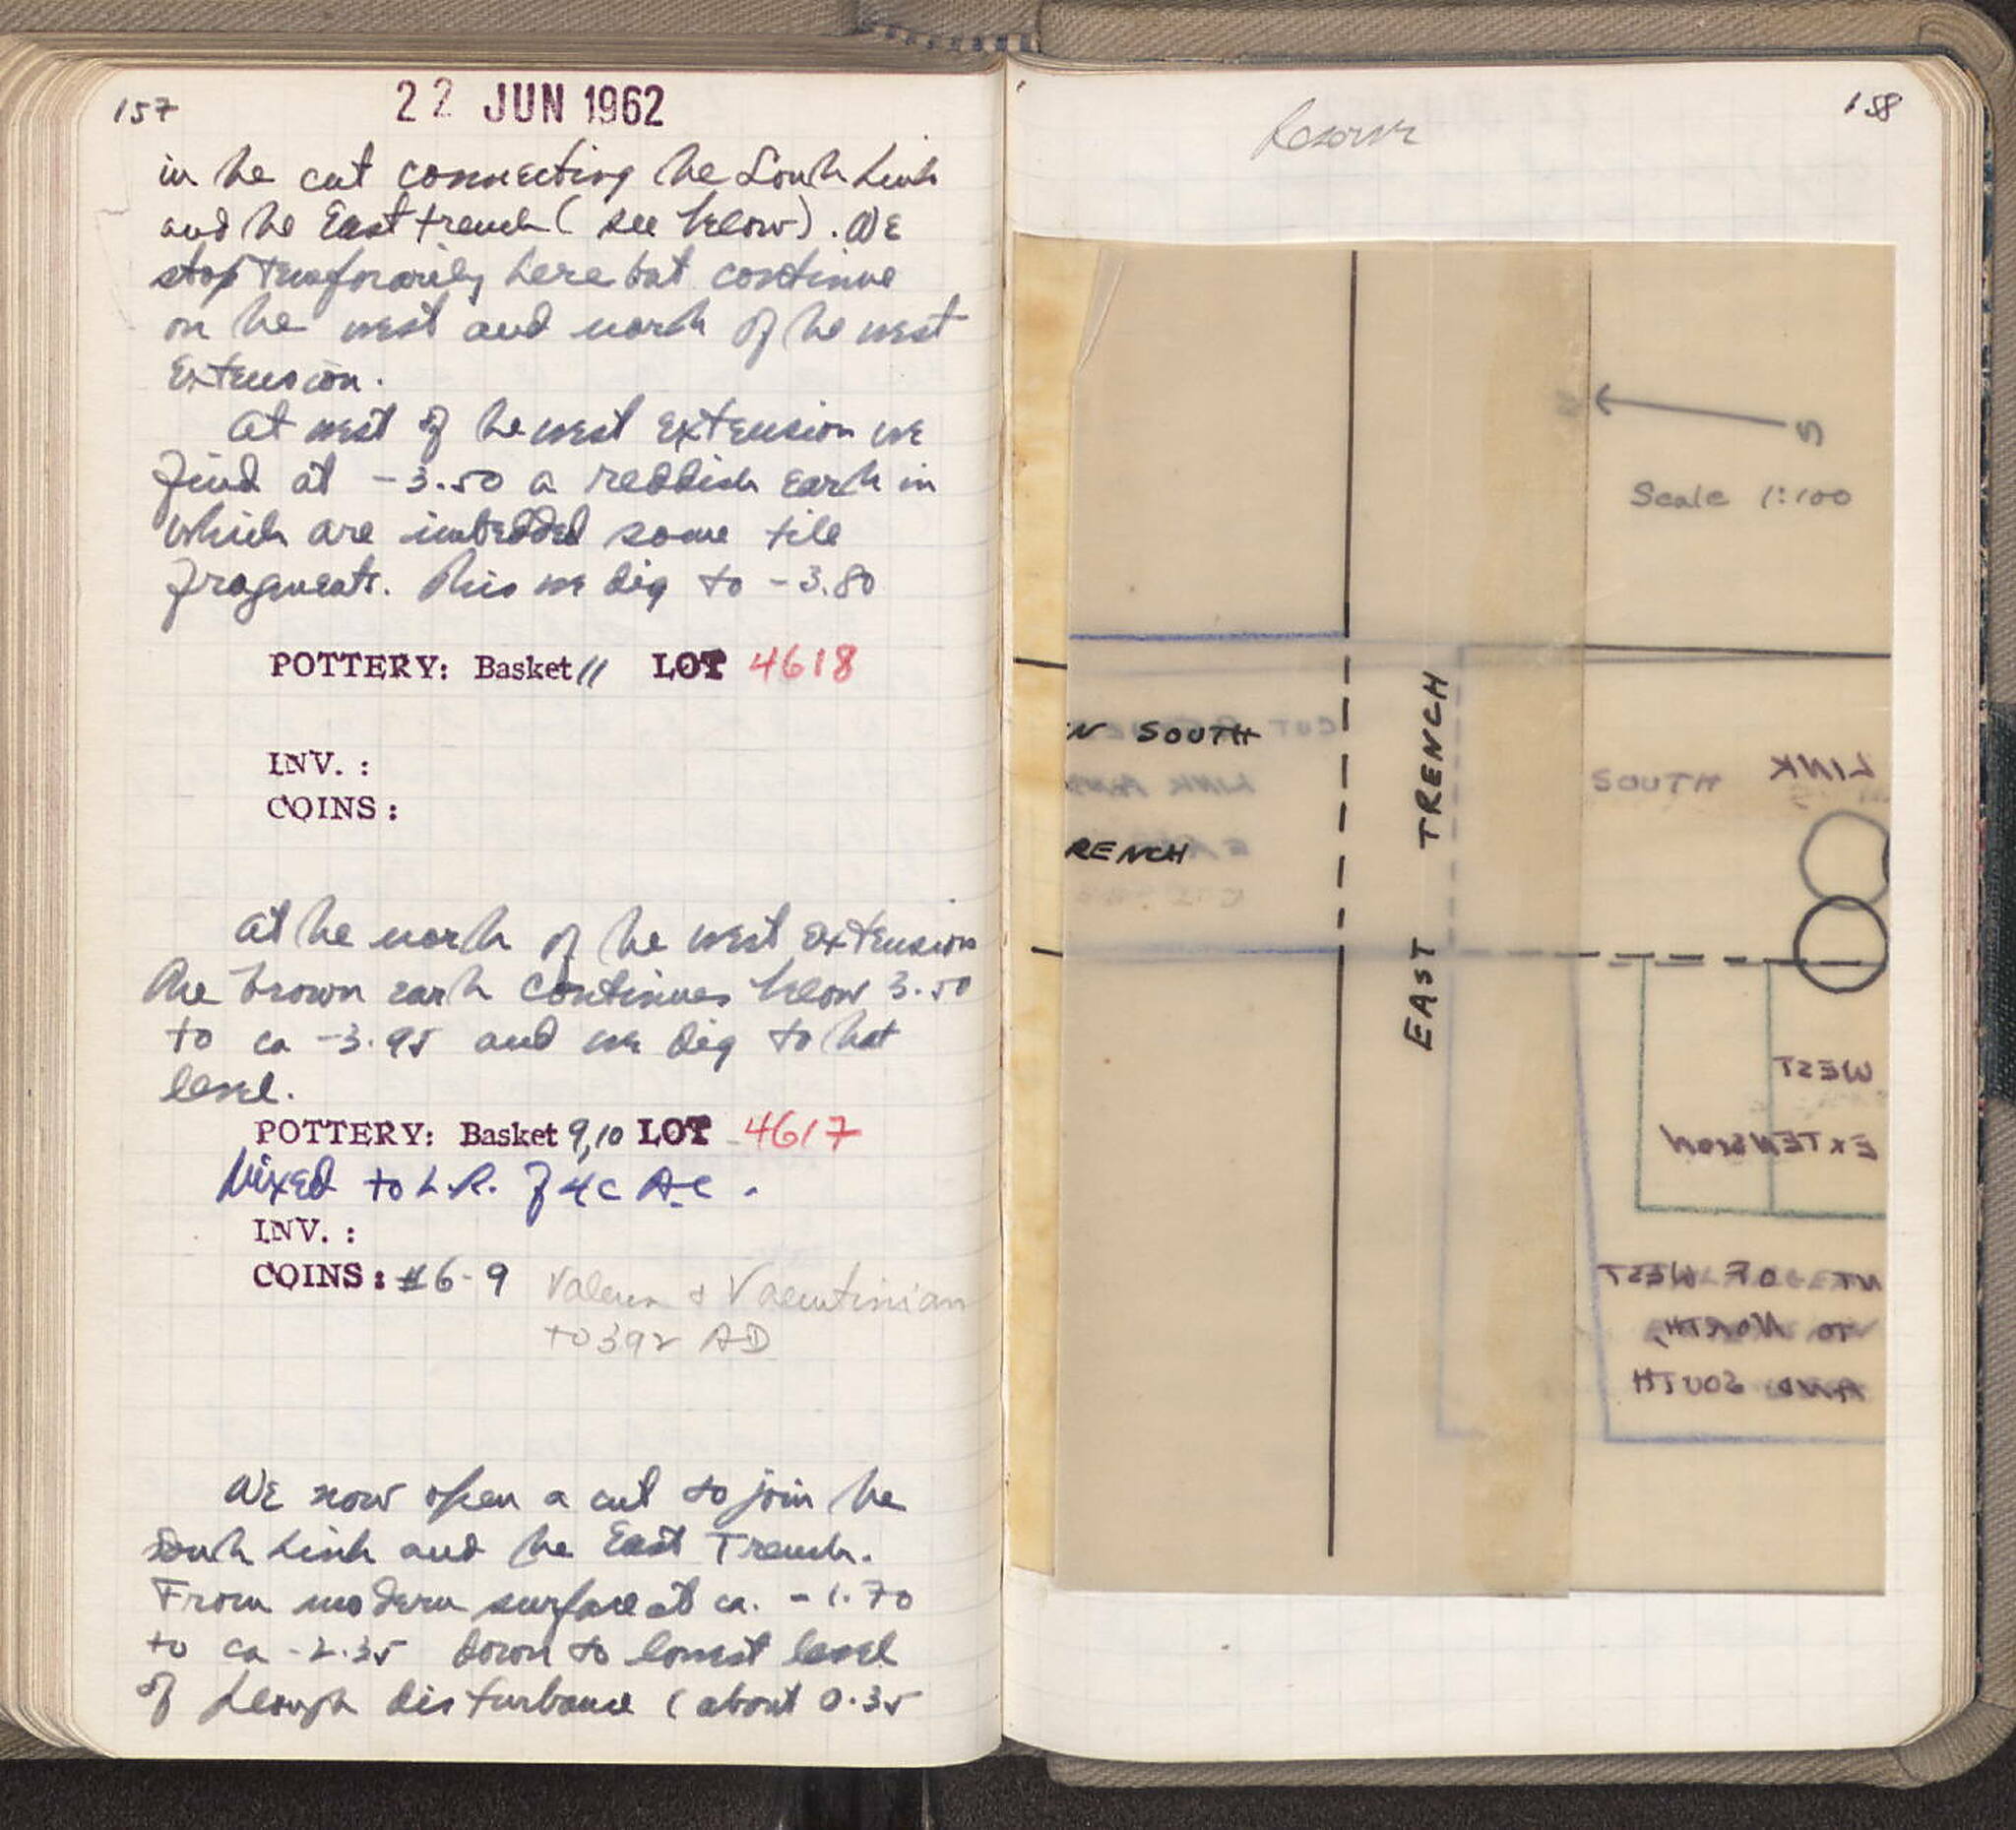 157
22 JUN 1962
in he cut connecting he South Link
and he East trench ( see below ) . We
stop temporarily here but continue
on he west and north of he west
Extension.
At west of he west extension we
find at -3.50 a reddish earth in
which are imbedded some tile
fragments. This we dig to -3.80
POTTERY: Basket 11 LOT 4618
INV. :
COINS :
At he north of he west extension
the brown earth continues below 3.50
to ca -3.95 and we dig to hat
level.
POTTERY: Basket 9,10 LOT 4617
Mixed to L.R. of 4C A.C.
INV. :
COINS : #6-9 Valens & Valentinian
to 392 AD
We now open a cut to join he
South Link and he East Trench.
From modern surface at ca. -1.70
to ca -2.35 down to lowest level
of plough disturbance ( about 0.35
158
Reserve
N
S
Scale 1:100
N SOUTH
RENCH
EAST TRENCH
CUT
LINK
SOUTH LINK
WEST
EXTENSION
OF WEST
TO NORTH,
AND SOUTH